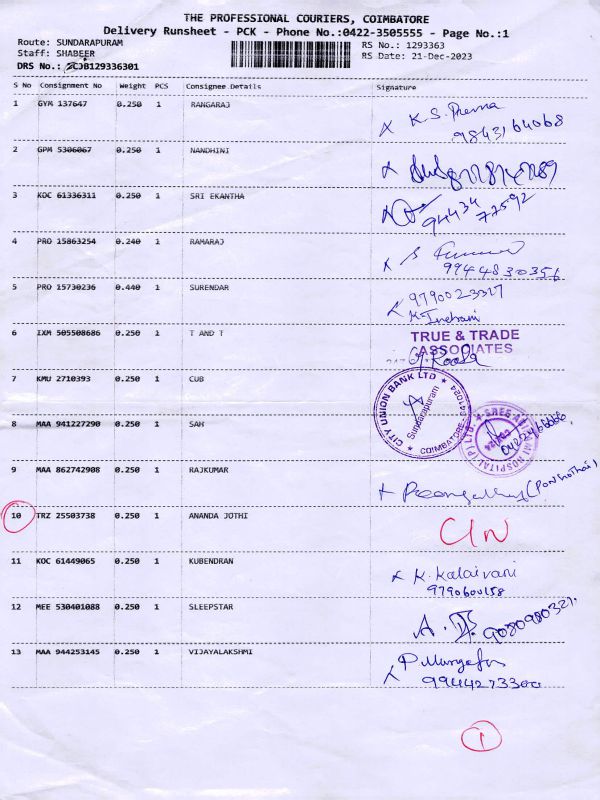 THE PROFESSIONAL COURIERS, COIMBATORE
Delivery Runsheet - PCK - Phone No.:0422-3505555 - Page No.:1
Route: SUNDARAPURAM
RS No.: 1293363
Staff: SHABEER
RS Date: 21-Dec-2023
DRS No.: B129336301
S No Consignment No Weight PCS Consignee Details Signature
1 GYM 137647 0.250 1 RANGARAJ K.S. Prema
9843164068
2 GPM 5306067 0.250 1 NANDHINI
3 KOC 61336311 0.250 1 SRI EKANTHA 94434
77592
4 PRO 15863254 0.240 1 RAMARAJ
9944830356
5 PRO 15730236 0.440 1 SURENDAR
K. Indrani
6 IXM 505508686 0.250 1 T AND T TRUE & TRADE
ASSOCIATES
7 KMU 2710393 0.250 1 CUB
CITY UNION BANK LTD
Sundarapuram
COIMBATORE-641024
8 MAA 941227290 0.250 1 SAH
HOSPITAL (P) LTD.
9 MAA 862742908 0.250 1 RAJKUMAR
10 TRZ 25503738 0.250 1 ANANDA JOTHI
11 KOC 61449065 0.250 1 KUBENDRAN K. Kalaivani
9790600158
12 MEE 530401088 0.250 1 SLEEPSTAR A. 9080980321.
13 MAA 944253145 0.250 1 VIJAYALAKSHMI
9944273300
1